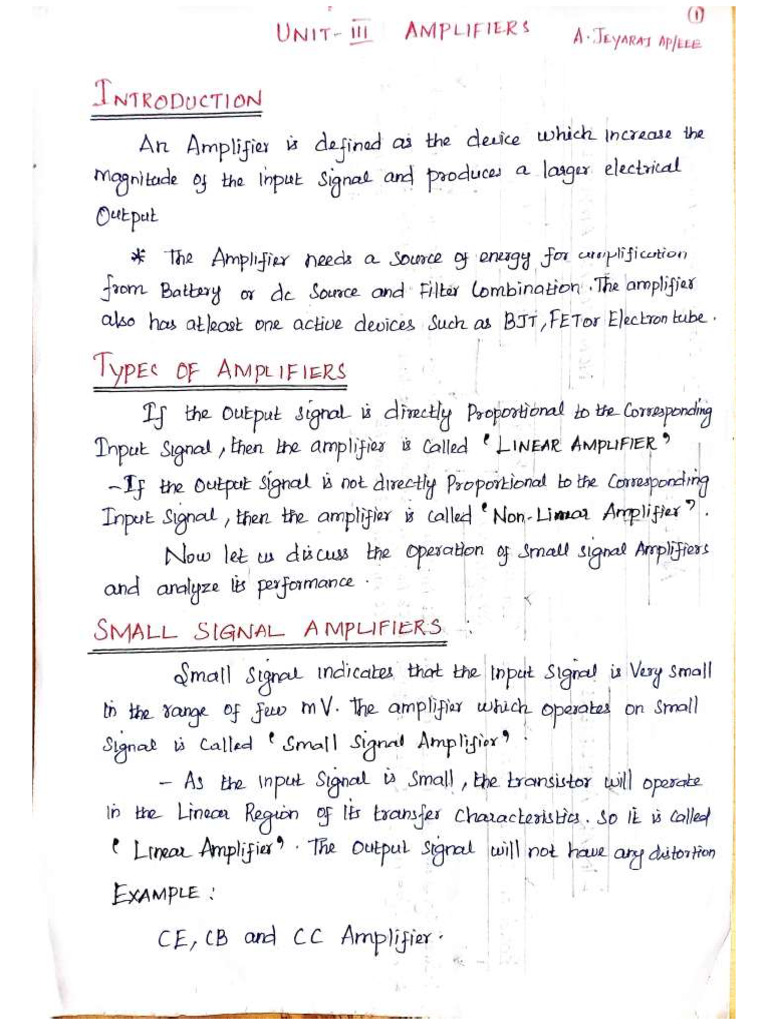 ①
UNIT-III AMPLIFIERS
A. JEYARAJ AP/EEE
INTRODUCTION
An Amplifier is defined as the device which increase the
magnitude of the input signal and produces a larger electrical
Output
* The Amplifier needs a source of energy for amplification
from Battery or dc Source and Filter Combination. The amplifier
also has atleast one active devices such as BJT, FET or Electron tube.
TYPES OF AMPLIFIERS
If the output signal is directly Proportional to the Corresponding
Input Signal, then the amplifier is called "LINEAR AMPLIFIER"
- If the output signal is not directly Proportional to the Corresponding
Input Signal, then the amplifier is called "Non-Linear Amplifier".
Now let us discuss the operation of small signal Amplifiers
and analyze its performance.
SMALL SIGNAL AMPLIFIERS :
Small signal indicates that the input signal is very small
in the range of few mV. The amplifier which operates on small
signal is called "Small Signal Amplifier".
- As the input signal is small, the transistor will operate
in the Linear Region of its transfer characteristics. So it is called
"Linear Amplifier". The output signal will not have any distortion
EXAMPLE :
CE, CB and CC Amplifier.